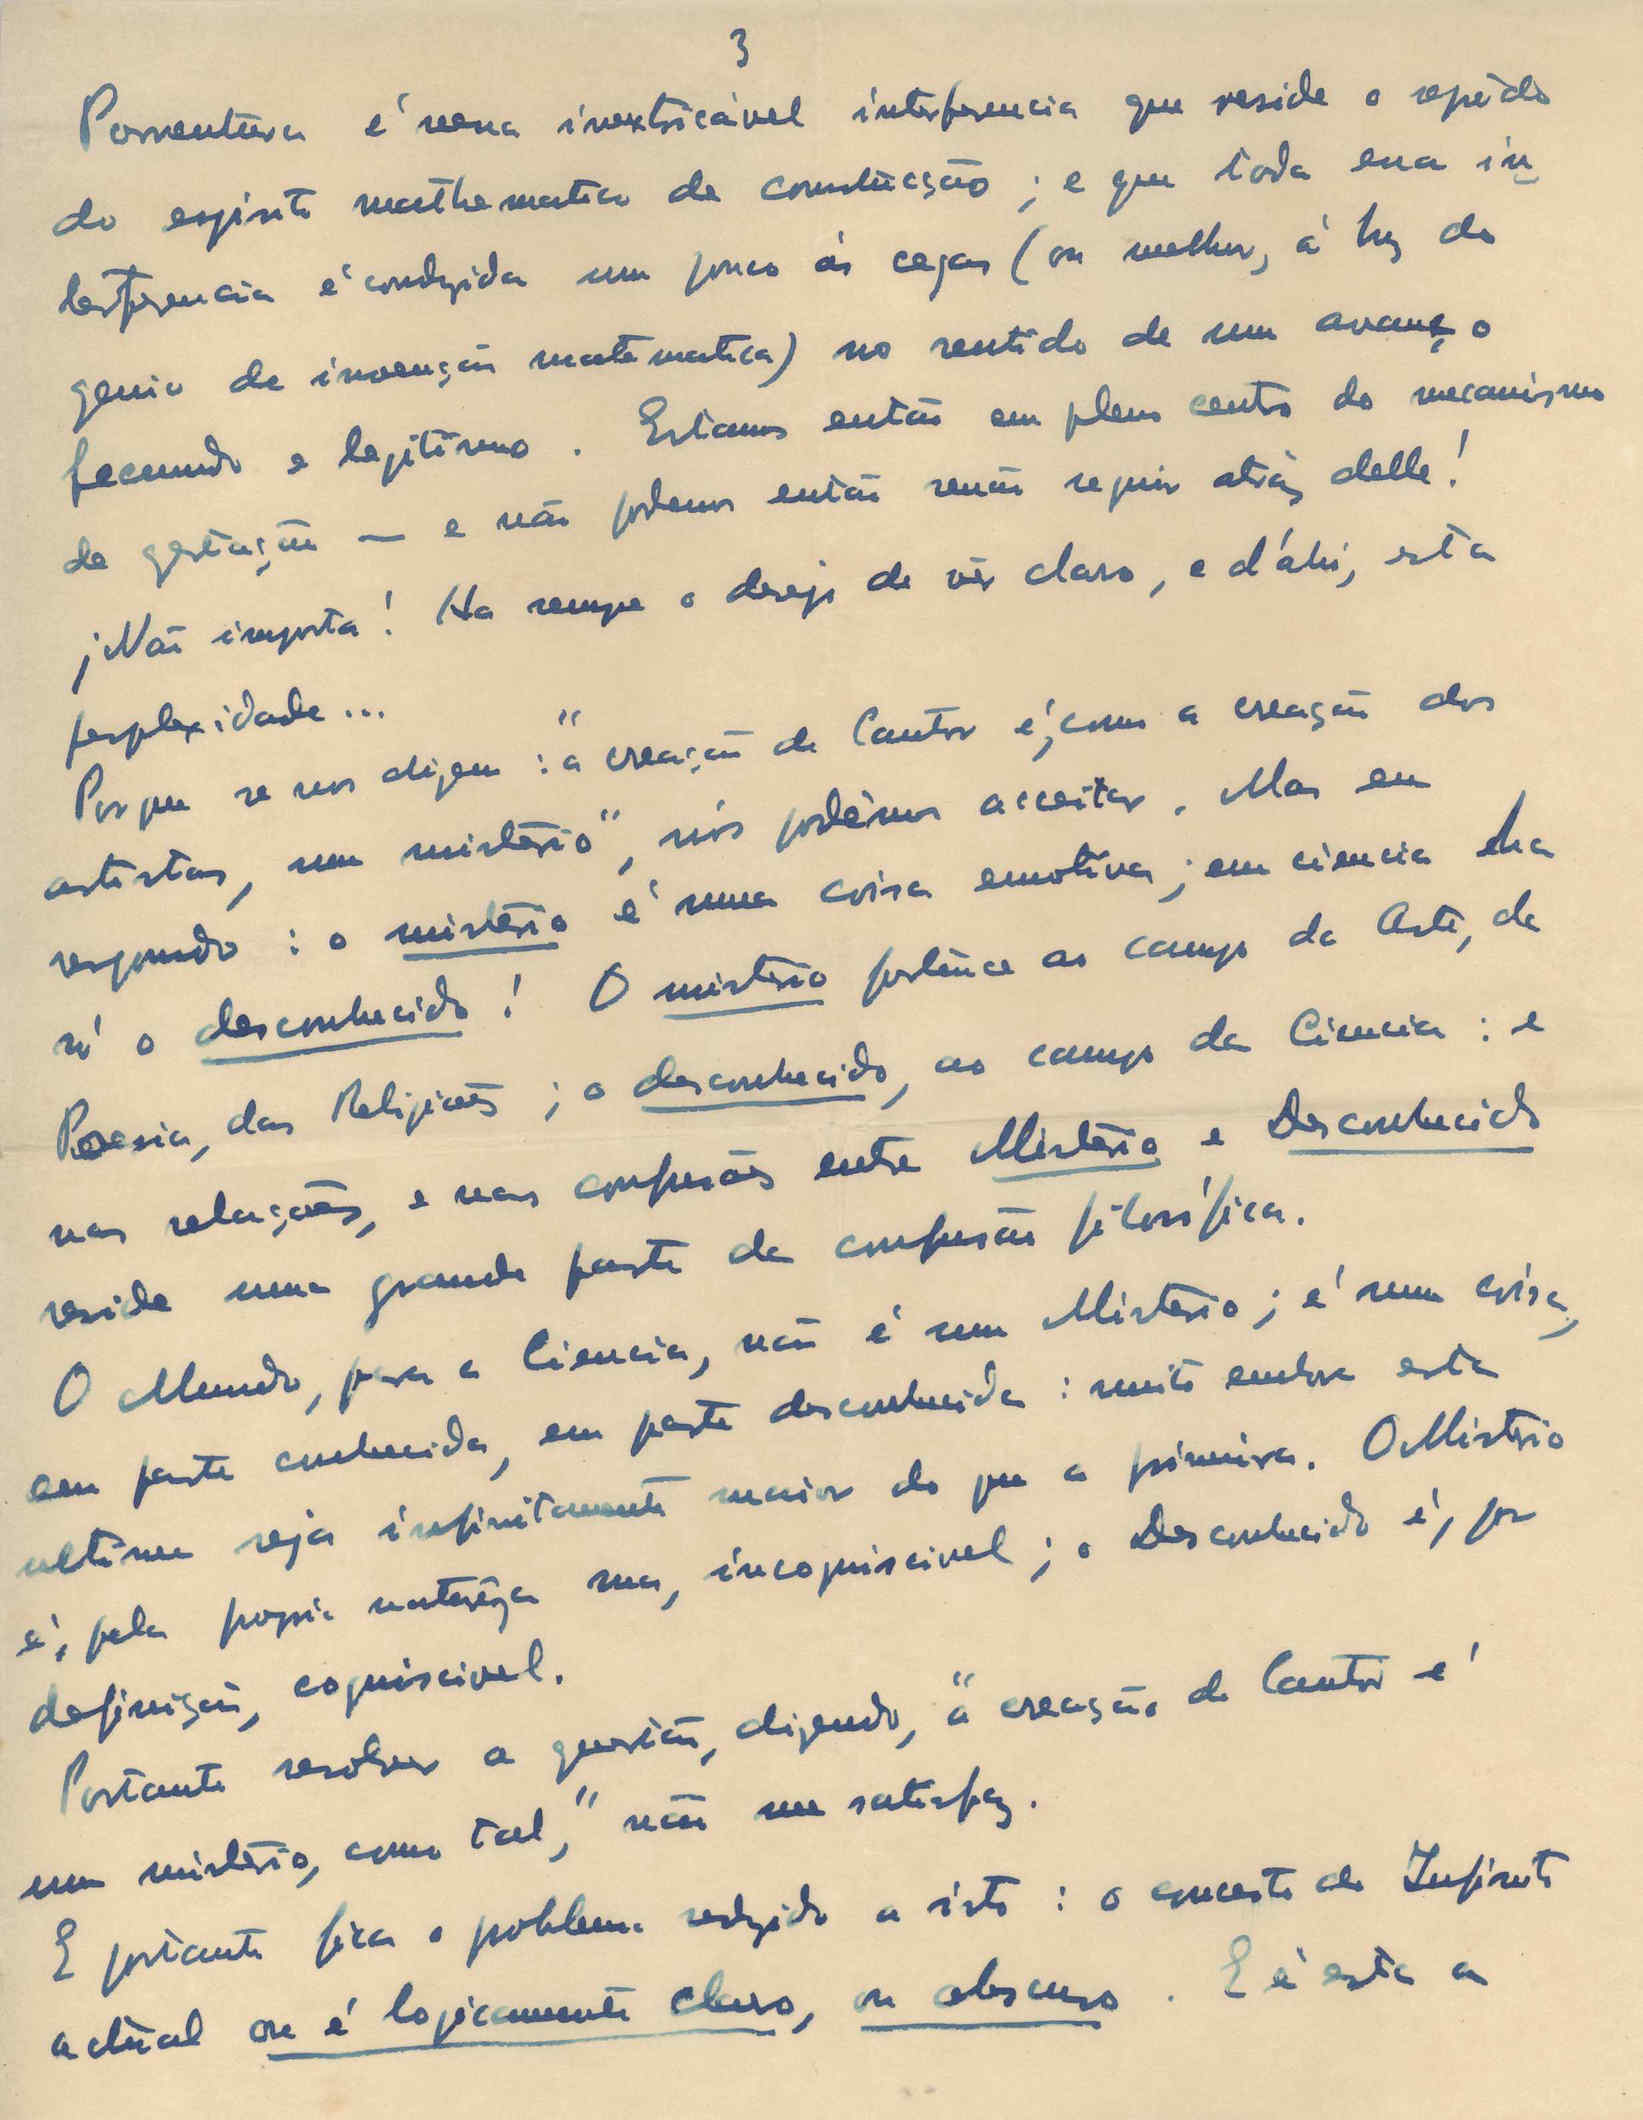 3
Porventura é nessa inextricável interferencia que reside o segrêdo
do espirito mathematico de construcção ; e que toda essa in
terferencia é conduzida um pouco ás cegas (ou melhor, á luz do
genio de invenção matematica) no sentido de um avanço
fecundo e legitimo . Estamos então em pleno centro do mecanismo
de gestação — e não podemos então senão seguir atrás delle !
¡Não importa ! Ha sempre o desejo de vêr claro, e d'ahi, esta
perplexidade ...
Porque se nos dizem : "a creação de Cantor é, como a creação dos
artistas, um mistério", nós podêmos acceitar . Mas eu
respondo : o mistério é uma coisa emotiva ; em ciencia ha
só o desconhecido ! O mistério pertence ao campo da Arte, da
Poesia, das Religiões ; o desconhecido, ao campo da Ciencia : e
nas relações, e nas confusões entre Mistério e Desconhecido
reside uma grande parte da confusão filosófica.
O Mundo, para a Ciencia, não é um Mistério ; é uma coisa,
em parte conhecida, em parte desconhecida : muito embora esta
ultima seja infinitamente maior do que a primeira. O Mistério
é, pela propria naturêza sua, incogniscivel ; o Desconhecido é, por
definição, cogniscivel.
Portanto resolver a questão, dizendo, "a creação de Cantor é
um mistério, como tal," não me satisfaz.
E portanto fica o problema reduzido a isto : o conceito do Infinito
actual ou é logicamente claro, ou obscuro . E é esta a